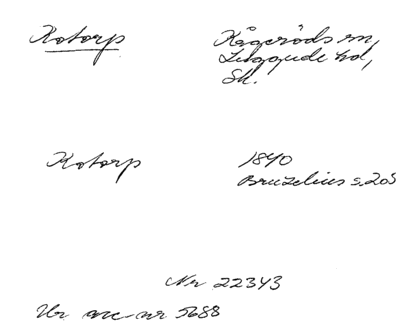 Kotorp Kågeröds sn,
Luggude hd,
Sk.
Kotorp 1840
Bruzelius s. 205
Nr 22343
Ur acc-nr 5688